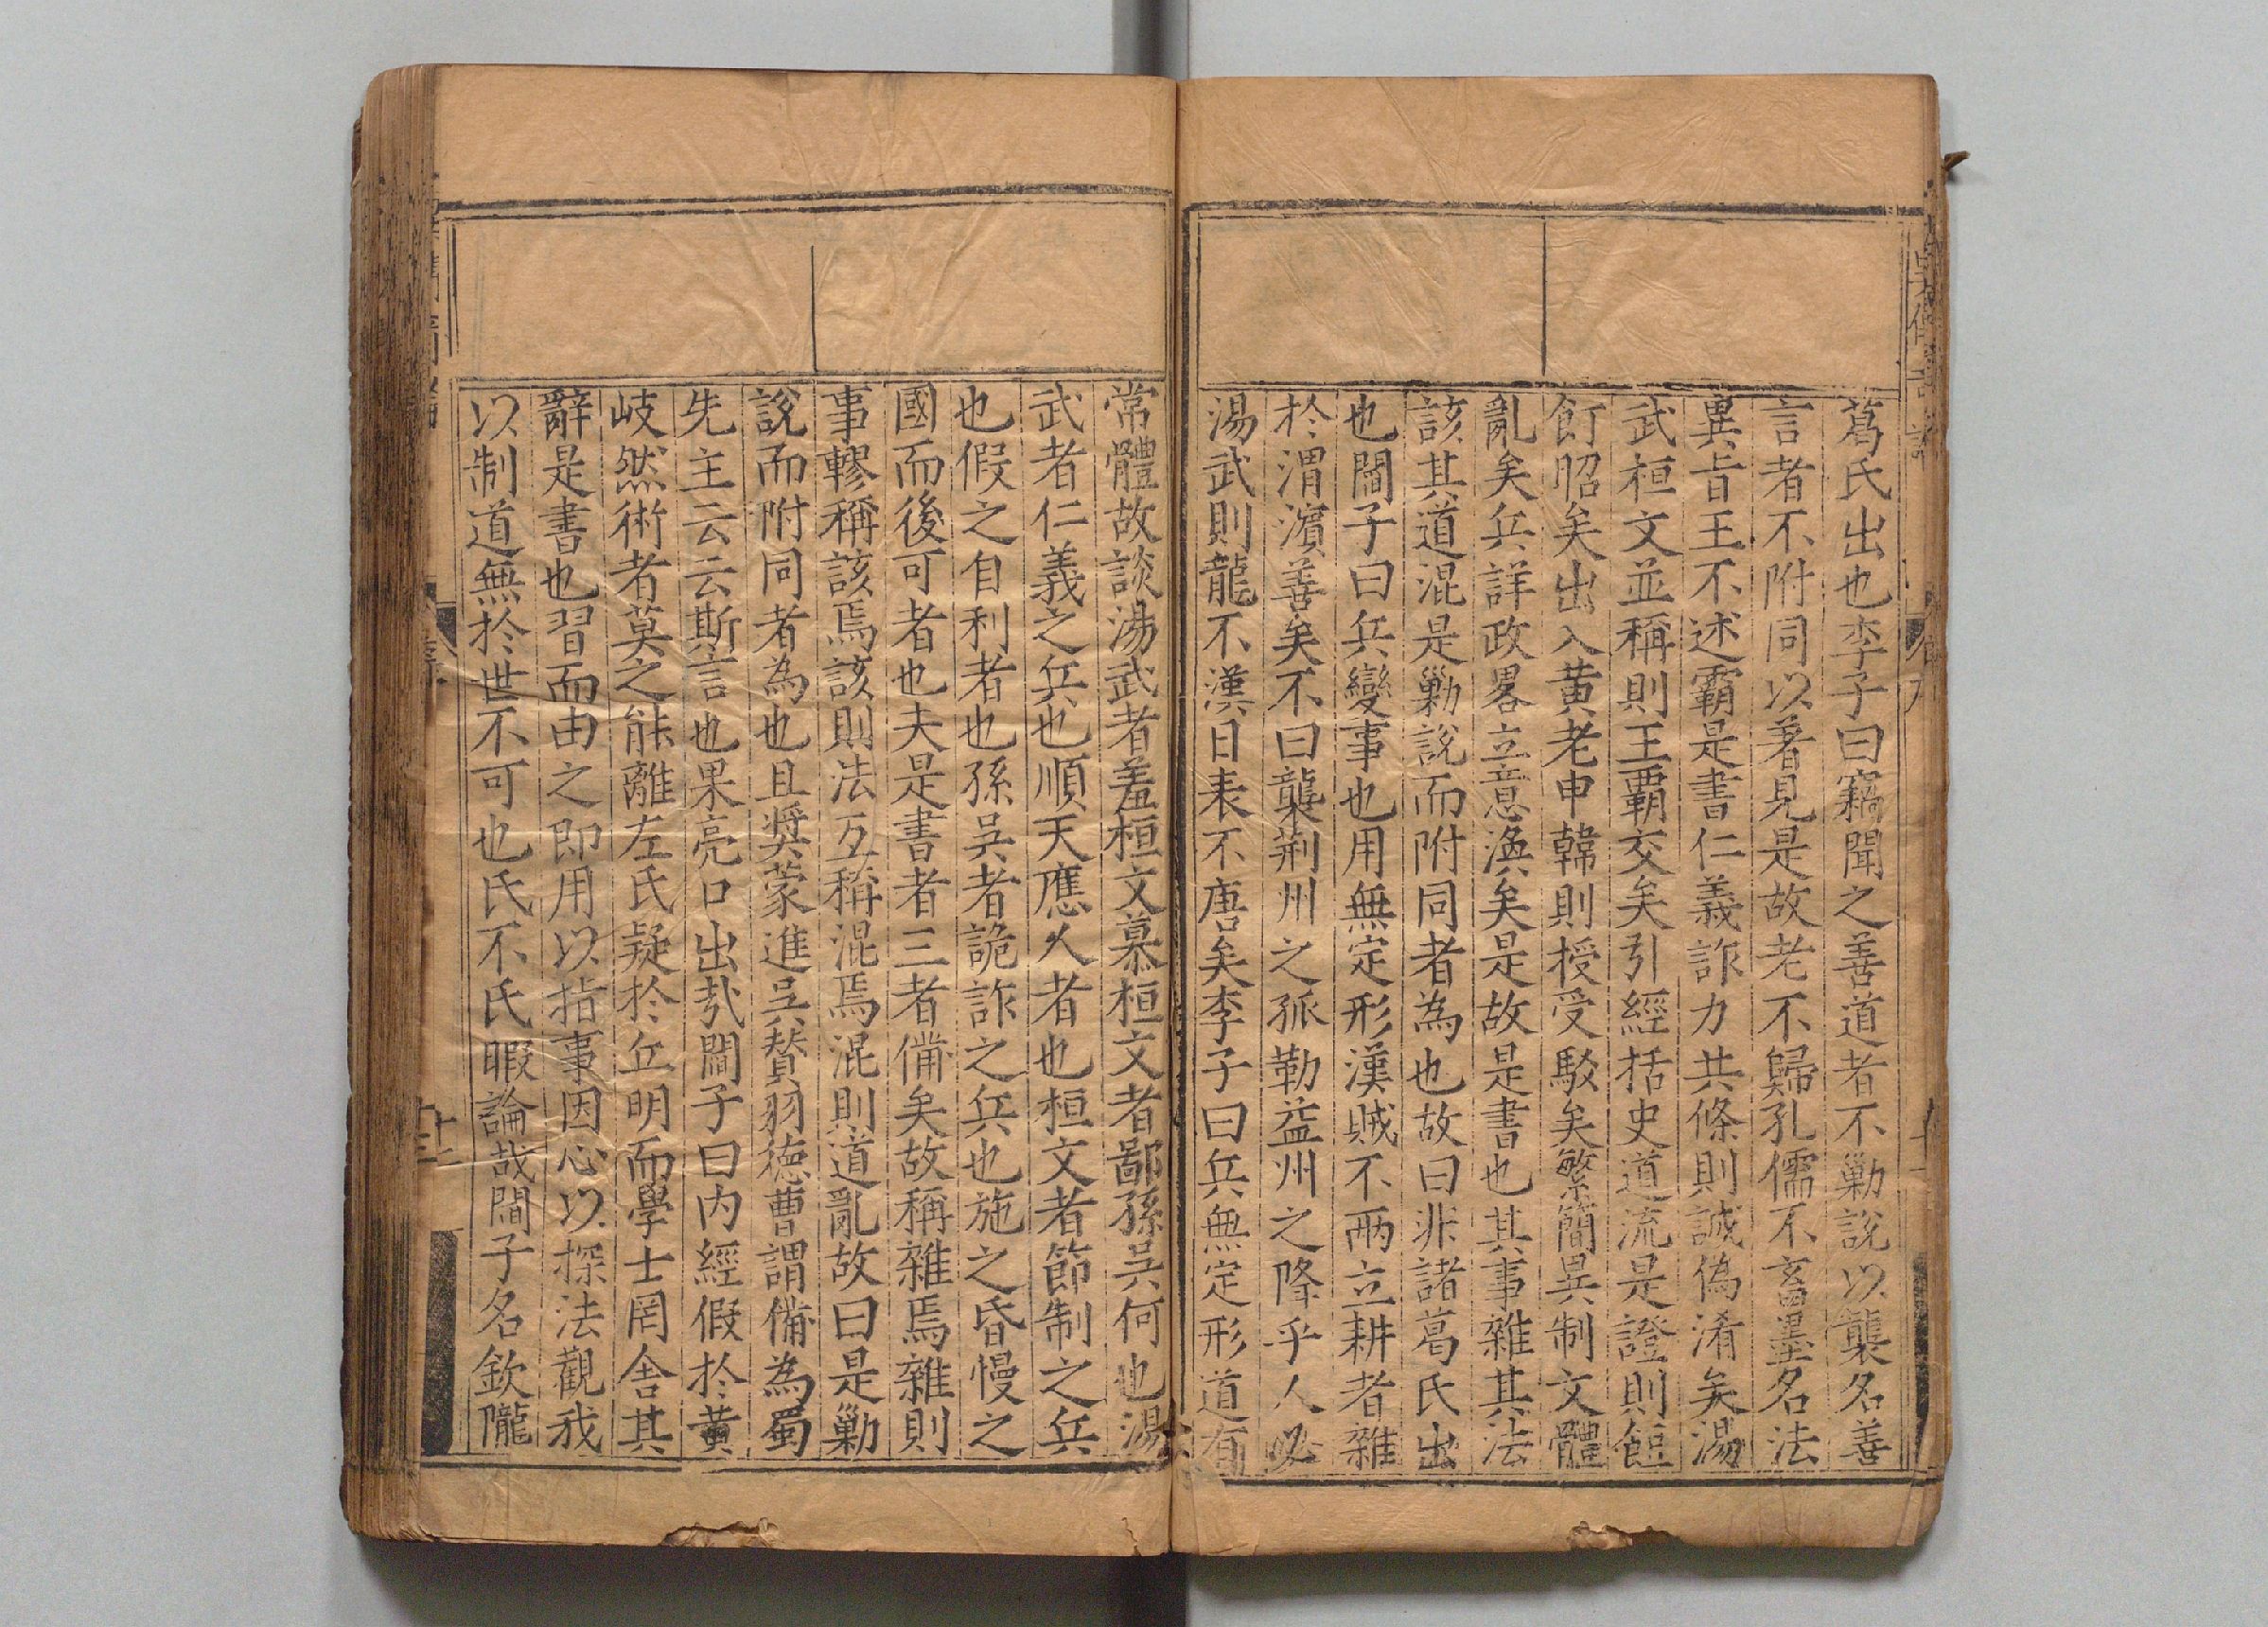 葛氏出也李子曰竊聞之善道者不勦說以襲名善
言者不附同以著見是故老不歸孔儒不畜墨名法
異旨王不述霸是書仁義詐力共條則誠偽淆矣湯
武桓文並稱則王霸交矣引經括史道流是證則餖
飣昭矣出入黃老申韓則授受駁矣繁簡異制文體
亂矣兵詳政畧立意渙矣是故是書也其事雜其法
該其道混是勦說而附同者為也故曰非諸葛氏出
也閭子曰兵變事也用無定形漢賊不兩立耕者雜
於渭濱善矣不曰襲荆州之孤勒益州之降乎人必
湯武則龍不漢日表不唐矣李子曰兵無定形道有
常體故談湯武者羞桓文慕桓文者鄙孫吳何也湯
武者仁義之兵也順天應人者也桓文者節制之兵
也假之自利者也孫吳者詭詐之兵也施之昏慢之
國而後可者也夫是書者三者備矣故稱雜焉雜則
事轇稱該焉該則法互稱混焉混則道亂故曰是勦
說而附同者為也且奬蒙進吳賛羽德曹謂備為蜀
先主云云斯言也果亮口出哉閭子曰内經假於黃
岐然術者莫之能離左氏疑於丘明而學士罔舍其
辭是書也習而由之即用以指事因心以探法觀我
以制道無於世不可也氏不氏暇論哉閭子名欽隴